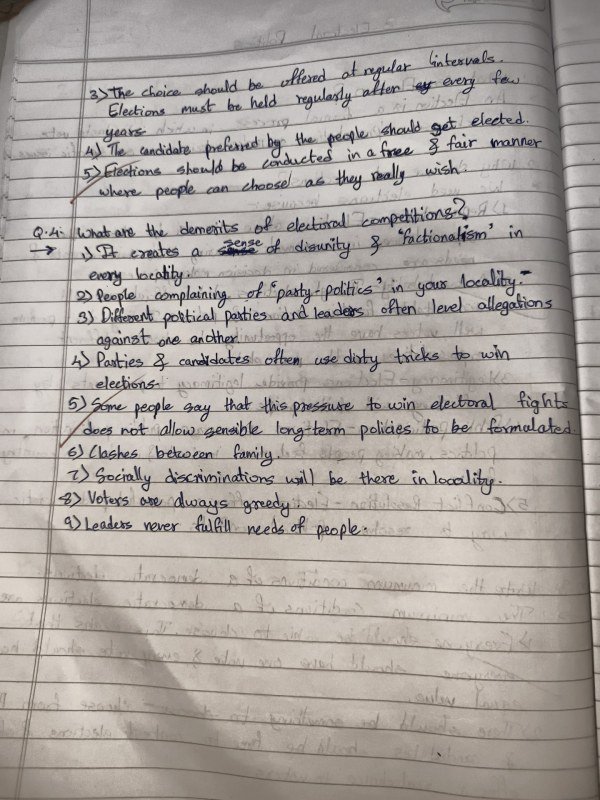 3) The choice should be offered at regular intervals.
Elections must be held regularly after every few
years.
4) The candidate preferred by the people should get elected.
5) Elections should be conducted in a free & fair manner
where people can choose as they really wish.
Q.4: What are the demerits of electoral competitions?
→ 1) It creates a sense of disunity & "factionalism" in
every locality.
2) People complaining of "party-politics" in your locality.
3) Different political parties and leaders often level allegations
against one another.
4) Parties & candidates often use dirty tricks to win
elections.
5) Some people say that this pressure to win electoral fights
does not allow sensible long-term policies to be formulated.
6) Clashes between family.
7) Socially discriminations will be there in locality.
8) Voters are always greedy
9) Leaders never fulfill needs of people.